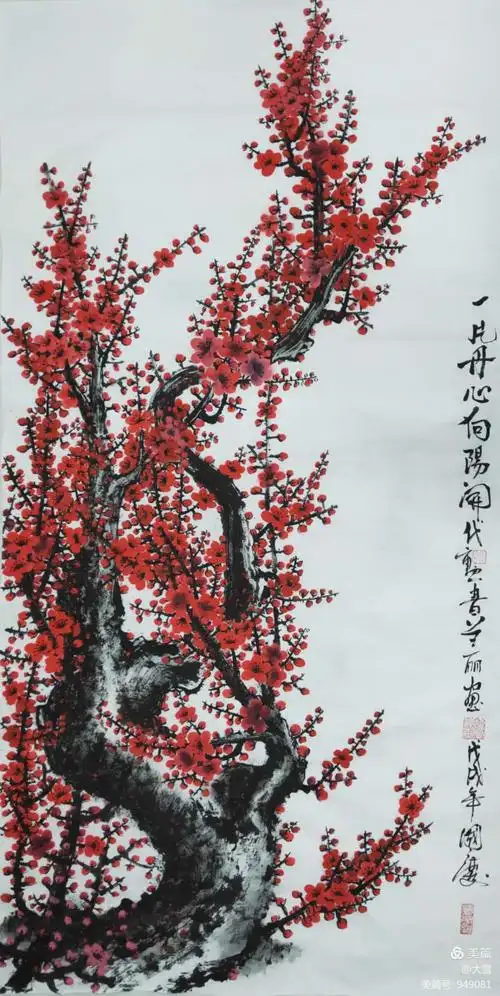 一片丹心向陽開代勲書兰丽画戊戌年國慶
美篇
@大雪
美篇号 949081